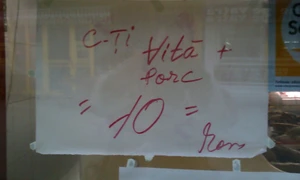 C-ȚI Vită +
porc
= 10 =
Ron